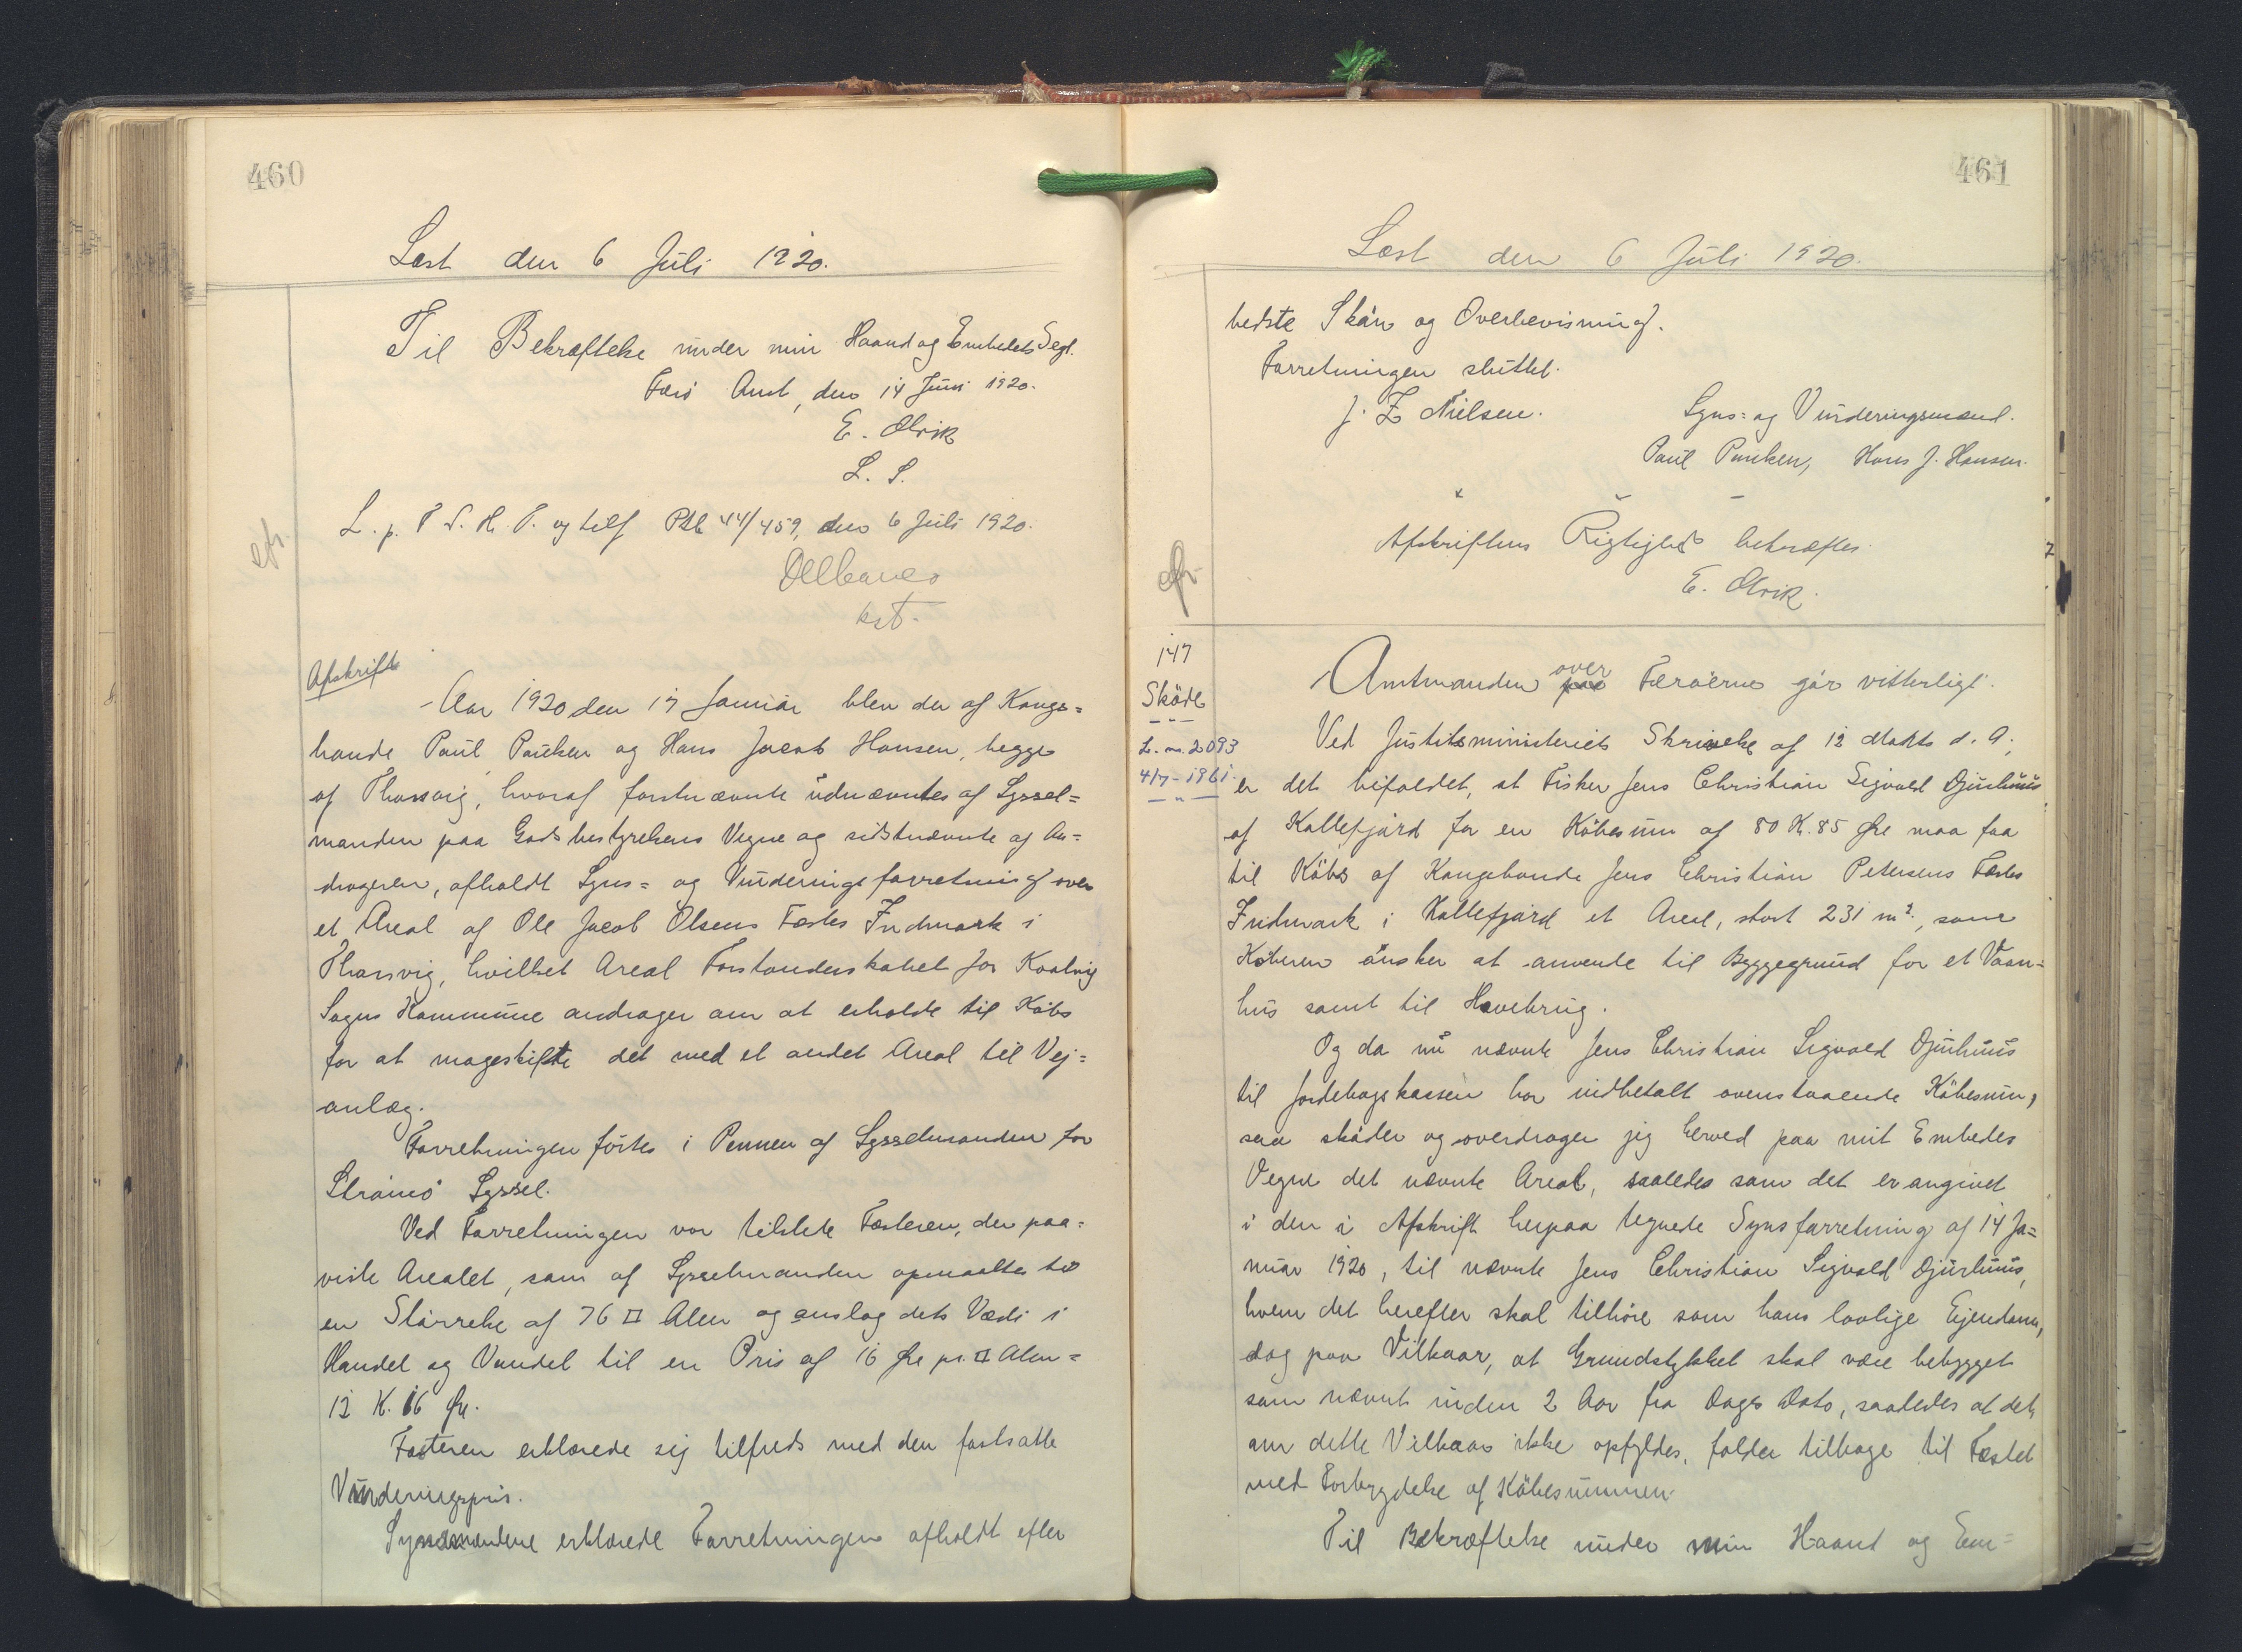 460
Læst den 6 Juli 1920.
Til Bekræftelse under min Haand og Embedets Segl.
Færö Amt, den 14 Juni 1920.
E. Olrik
L. S.
L. p. T. S. H. P. og tilf Ptb 44/459, den 6 Juli 1920.
kst.
Afskrift
Aar 1920 den 17 Januar blev der af Kongs=
bonde Paul Paulsen og Hans Jacob Hansen, begge
af Thorsvig, hvoraf förstnævnte udnævntes af Syssel=
manden paa Godsbestyrelsens Vegne og sidstnævnte af An=
drageren, afholdt Syns= og Vurderingsforretning over
et Areal af Ole Jacob Olsens Fæstes Indmark i
Thorsvig, hvilket Areal Forstanderskabet for Kvalvig
Sogns Kommune andrager om at erholde til Köbs
for at mageskifte det med et andet Areal til Vej=
anlæg.
Forretningen förtes i Pennen af Sysselmanden for
Strömö Syssel.
Ved Forretningen var tilstede Fæsteren, der paa=
viste Arealet, som af Sysselmanden opmaaltes til
en Störrelse af 76 □ Alen og anslog dets Værdi i
Handel og Vandel til en Pris af 16 Øre pr. □ Alen =
12 K. 16 Øre.
Fæsteren erklærede sig tilfreds med den fastsatte
Vurderingspris.
Synsmændene erklærede Forretningen afholdt efter
461
Læst den 6 Juli 1920.
bedste Skön og Overbevisning.
Forretningen sluttet.
J. Z Nielsen. Syns= og Vurderingsmænd.
Paul Paulsen, Hans J. Hansen.
Afskriftens Rigtighed bekræftes.
E. Olrik.
147
Sköde
L. nr. 2093
4/7-1961.
Amtmanden over paa Færöerne gör vitterligt.
Ved Justitsministeriets Skrivelse af 12 Marts d. A.,
er det bifaldet, at Fisker Jens Christian Sigvald Djurhuus
af Kollefjörd for en Köbesum af 80 K. 85 Øre maa faa
til Köbs af Kongsbonde Jens Christian Petersens Fæstes
Indmark i Kollefjörd et Areal, stort 231 m², som
Köberen önsker at anvende til Byggegrund for et Vaan=
hus samt til Havebrug.
Og da nu nævnte Jens Christian Sigvald Djurhuus
til Jordebogskassen har indbetalt ovenstaaende Köbesum,
saa sköder og overdrager jeg herved paa mit Embedes
Vegne det nævnte Areal, saaledes som det er angivet
i den i Afskrift herpaa tegnede Synsforretning af 14 Ja=
nuar 1920, til nævnte Jens Christian Sigvald Djurhuus,
hvem det herefter skal tilhöre som hans lovlige Ejendom,
dog paa Vilkaar, at Grundstykket skal være bebygget
som nævnt inden 2 Aar fra Dags Dato, saaledes at det,
om dette Vilkaar ikke opfyldes, falder tilbage til Fæstet
med Forbrydelse af Köbesummen.
Til Bekræftelse under min Haand og Em=